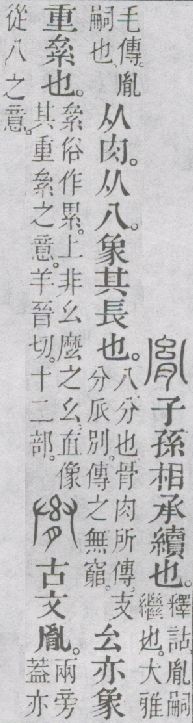 胤子孫相承續也。釋詁。胤嗣繼也。大雅
毛傳。胤嗣也。从肉。从八。象其長也。八分也。骨肉所傳。支分𠂢別。傳之無窮。幺亦象
重絫也。絫俗作累。上非幺麼之幺。直像其重絫之意。羊晉切。十二部。古文胤。兩旁蓋亦
從八之意。